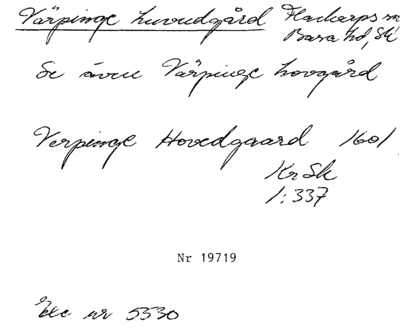 Värpinge huvudgård Flackarps sn
Bara hd, Sk
Se även Värpinge hovgård
Verpinge Hovedgaard 1601
Kr Sk
1:337
Nr 19719
nr 5530